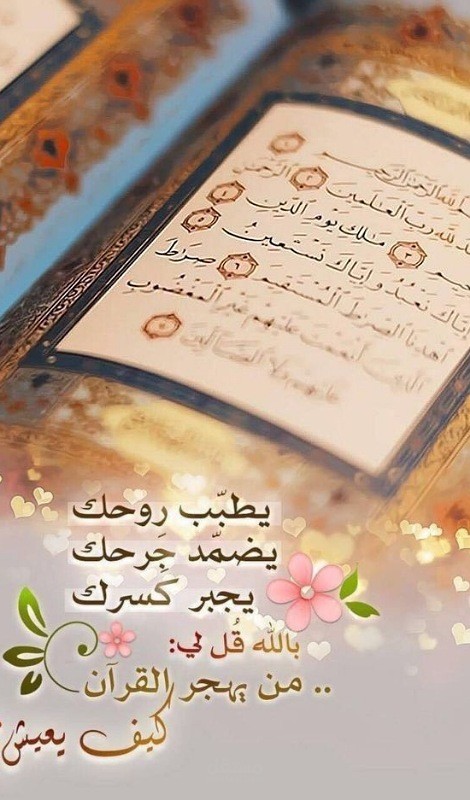 الله الرحمن الرحيم ١
لله رب العلمين ٢ الرحمن
٣ ملك يوم الدين ٤
نعبد وإياك نستعين ٥
اهدنا الصرط المستقيم ٦ صرط
الذين أنعمت عليهم غير المغضوب
عليهم ولا الضالين ٧
يطبّب روحك
يضمّد جَرحك
يجبر كسرك
بالله قُل لي:
.. من يهجر القرآن
كيف يعيش